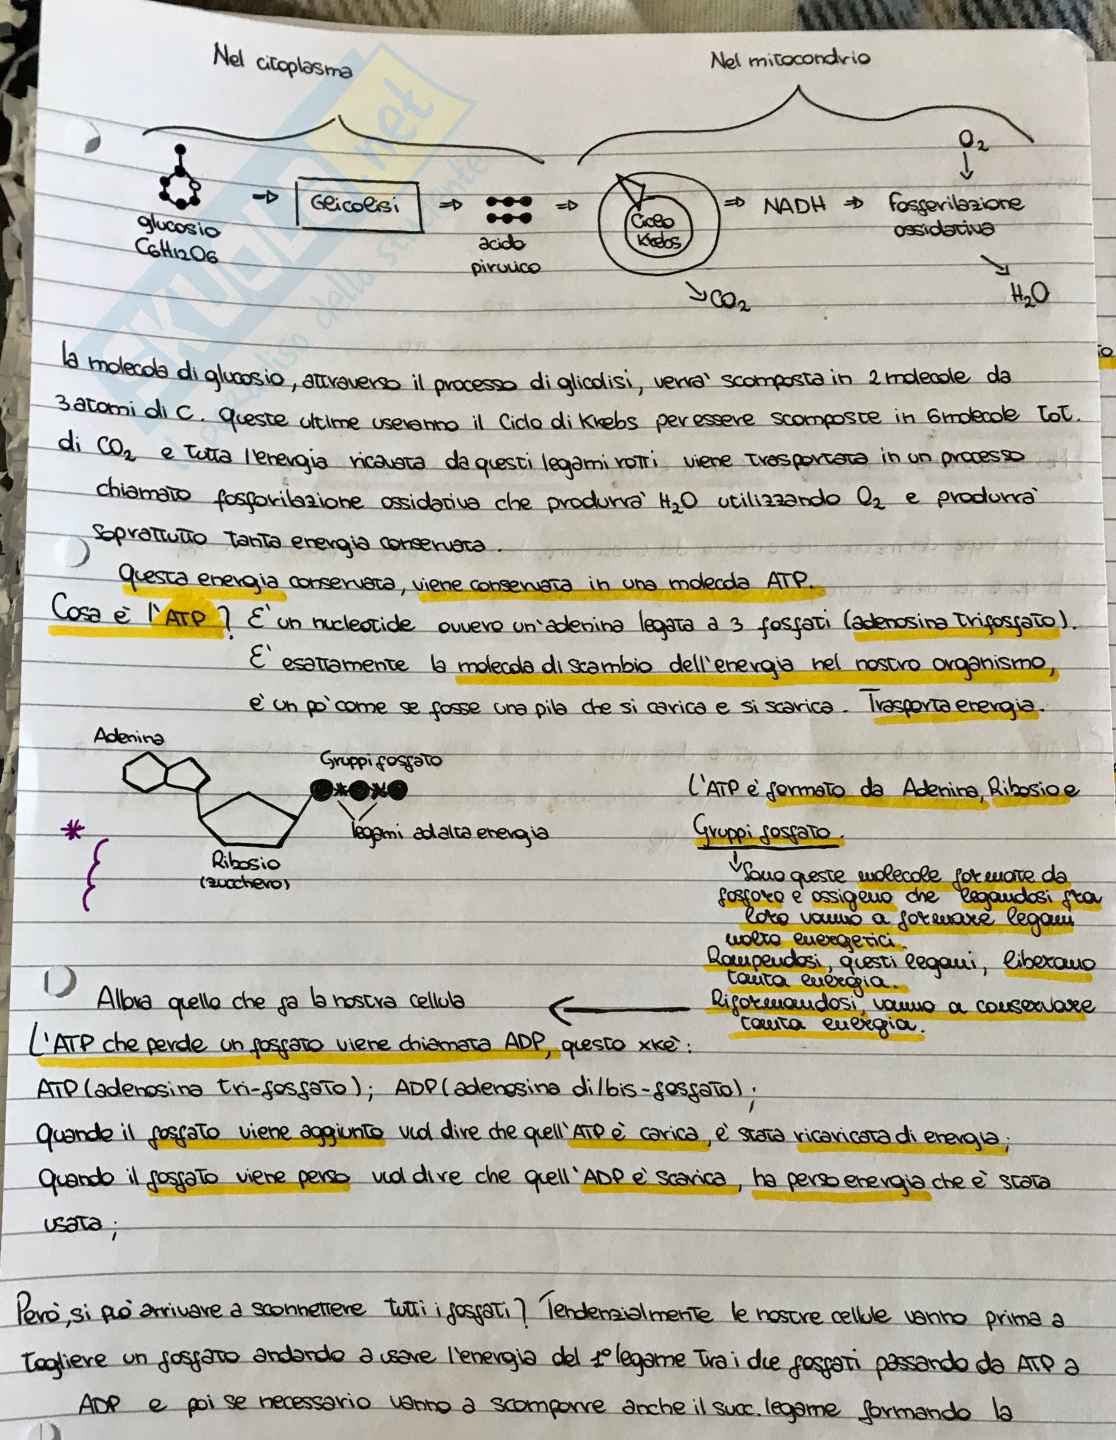 Nel citoplasma
Nel mitocondrio
O2
glucosio
C6H12O6
Glicolisi
acido
piruvico
Ciclo
Krebs
NADH
fosforilazione
ossidativa
CO2
H2O
la molecola di glucosio, attraverso il processo di glicolisi, verrà scomposta in 2 molecole da
3 atomi di C. Queste ultime useranno il Ciclo di Krebs per essere scomposte in 6 molecole tot.
di CO2 e tutta l'energia ricavata da questi legami rotti viene trasportata in un processo
chiamato fosforilazione ossidativa che produrrà H2O utilizzando O2 e produrrà
soprattutto tanta energia conservata.
Questa energia conservata, viene conservata in una molecola ATP.
Cosa è l'ATP? E' un nucleotide ovvero un'adenina legata a 3 fosfati (adenosina trifosfato).
E' esattamente la molecola di scambio dell'energia nel nostro organismo,
è un pò come se fosse una pila che si carica e si scarica. Trasporta energia.
Adenina
Gruppi fosfato
legami ad alta energia
Ribosio
(zucchero)
L'ATP è formato da Adenina, Ribosio e
Gruppi fosfato.
Sono queste molecole formate da
fosforo e ossigeno che legandosi fra
loro vanno a formare legami
molto energetici.
Rompendosi, questi legami, liberano
tanta energia.
Riformandosi, vanno a conservare
tanta energia.
Allora quello che fa la nostra cellula
L'ATP che perde un fosfato viene chiamata ADP, questo xkè:
ATP (adenosina tri-fosfato); ADP (adenosina di/bis-fosfato);
Quando il fosfato viene aggiunto vuol dire che quell'ATP è carica, è stata ricaricata di energia;
Quando il fosfato viene perso vuol dire che quell'ADP è scarica, ha perso energia che è stata
usata;
Però, si può arrivare a sconnettere tutti i fosfati? Tendenzialmente le nostre cellule vanno prima a
togliere un fosfato andando a usare l'energia del 1° legame tra i due fosfati passando da ATP a
ADP e poi se necessario vanno a scomporre anche il succ. legame formando la